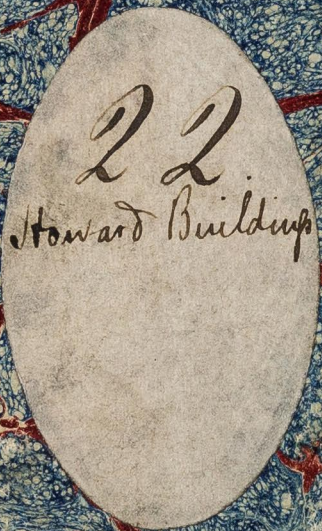 22.
Howard Buildings